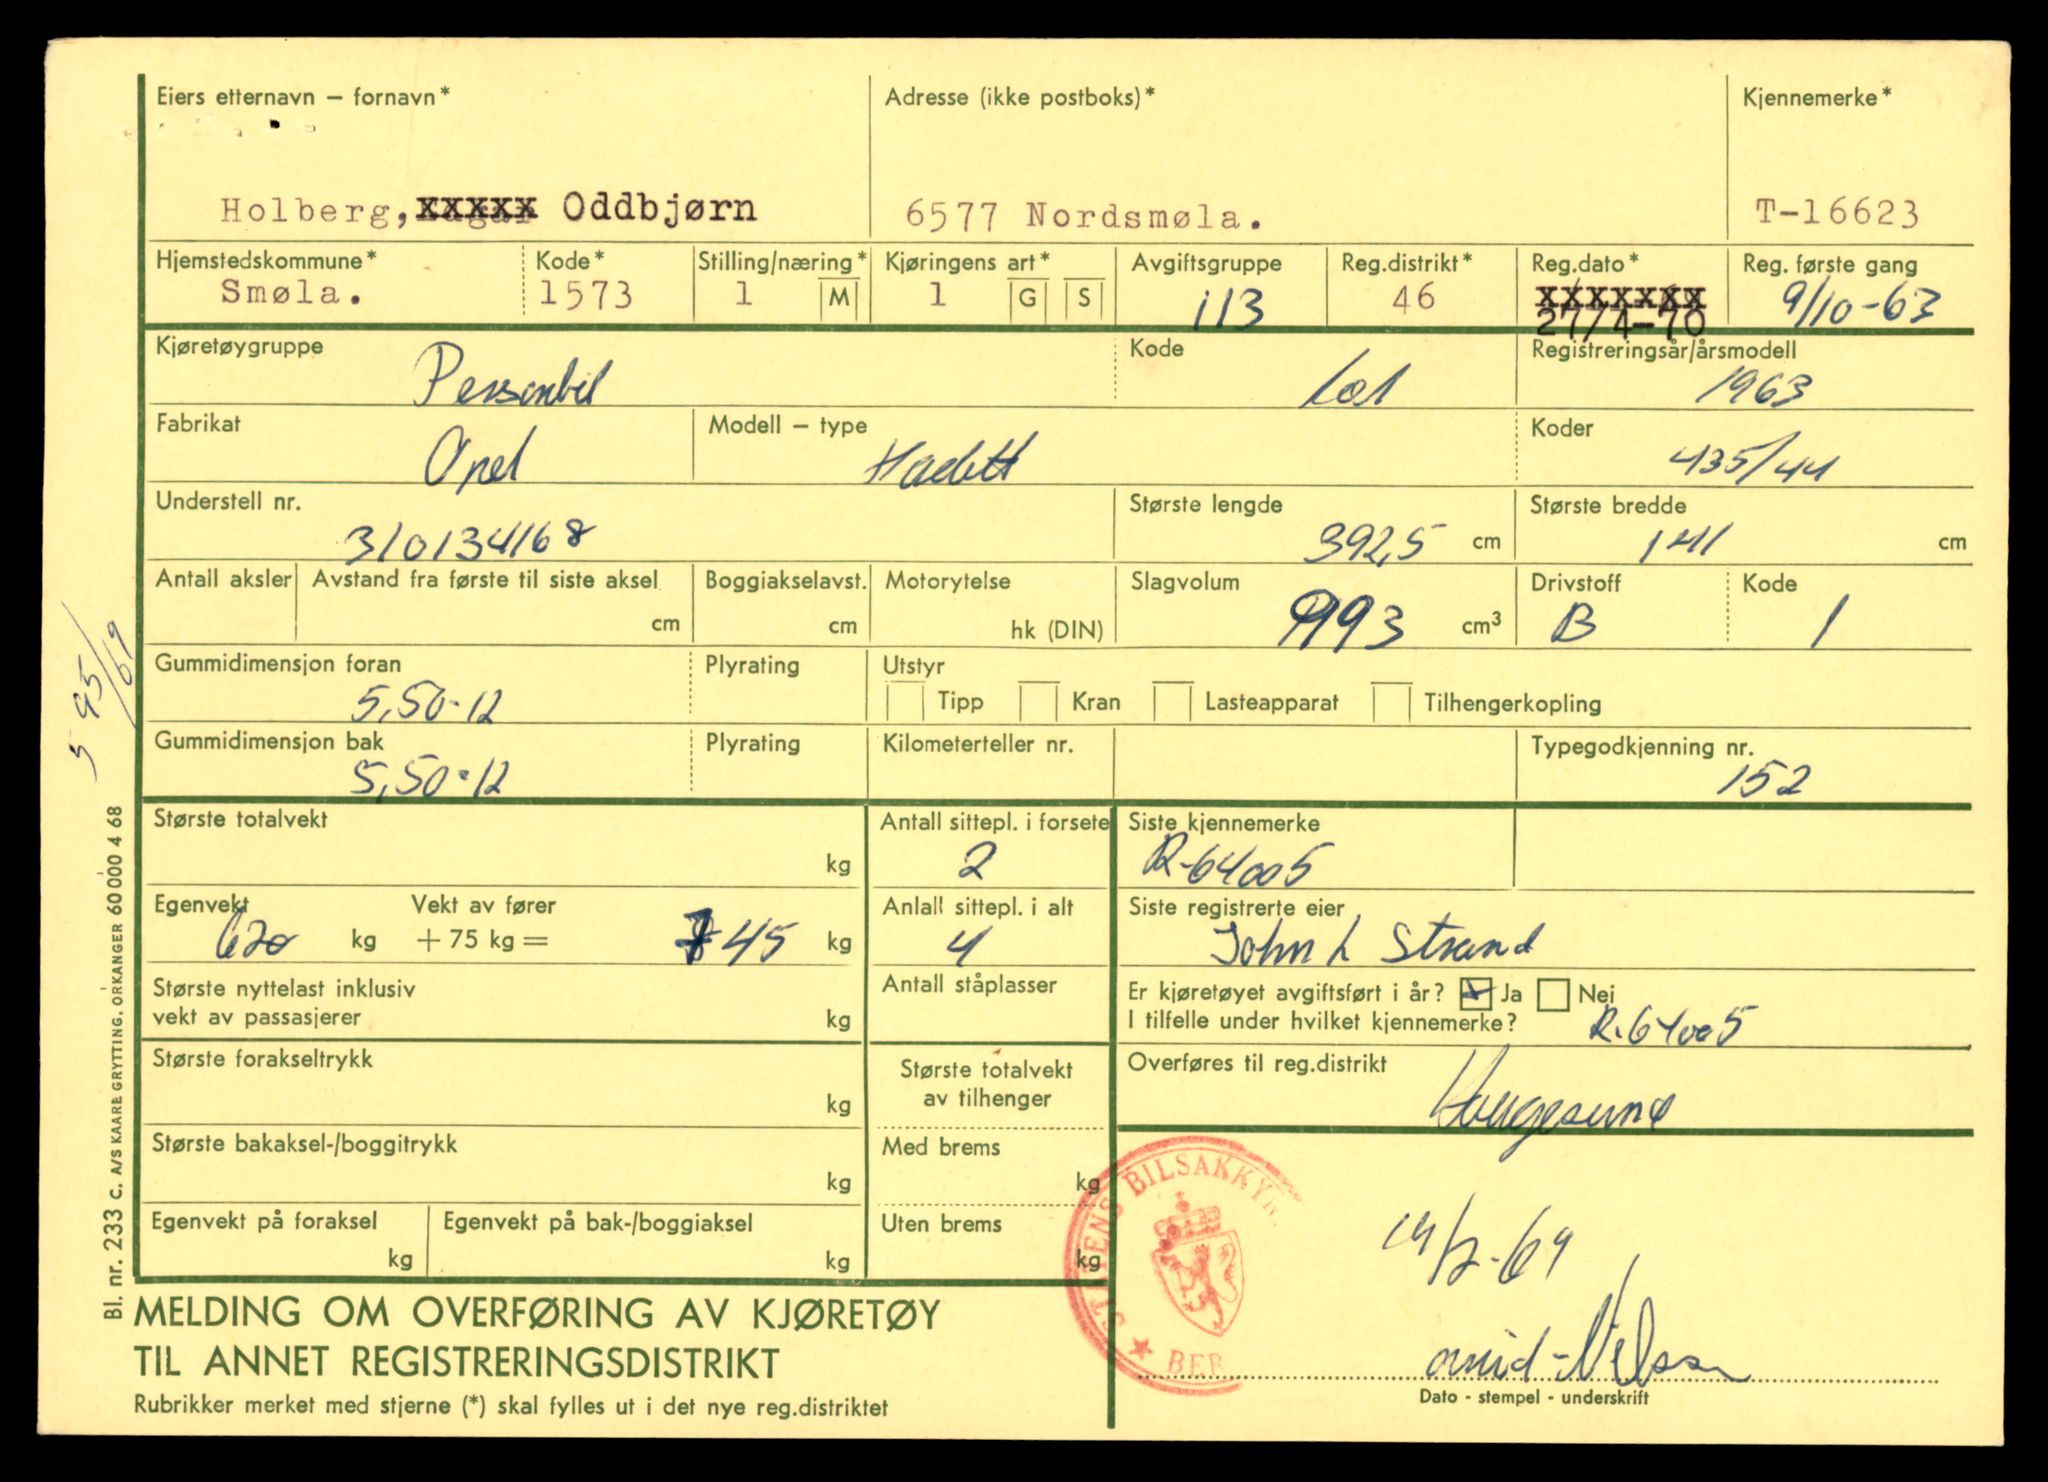 Eiers etternavn – fornavn* Adresse (ikke postboks)* Kjennemerke*
Holberg, xxxxx Oddbjørn 6577 Nordsmøla. T-16623
Hjemstedskommune* Kode* Stilling/næring* Kjøringens art* Avgiftsgruppe Reg.distrikt* Reg.dato* Reg. første gang
Smøla. 1573 1 M 1 G S 113 46 xxxxxxx 9/10-63
27/4-70
Kjøretøygruppe Kode Registreringsår/årsmodell
Personbil 101 1963
Fabrikat Modell – type Koder
Opel Kadett 435/44
Understell nr. Største lengde Største bredde
310134168 392,5 cm 141 cm
Antall aksler Avstand fra første til siste aksel Boggiakselavst. Motorytelse Slagvolum Drivstoff Kode
cm cm hk (DIN) 993 cm³ B 1
Gummidimensjon foran Plyrating Utstyr
5,50-12 Tipp Kran Lasteapparat Tilhengerkopling
Gummidimensjon bak Plyrating Kilometerteller nr. Typegodkjenning nr.
5,50-12 152
Største totalvekt Antall sittepl. i forsete Siste kjennemerke
kg 2 R-64005
Egenvekt Vekt av fører Anlall sittepl. i alt Siste registrerte eier
620 kg + 75 kg = 745 kg 4 John L Strand
Største nyttelast inklusiv Antall ståplasser Er kjøretøyet avgiftsført i år? Ja Nei
vekt av passasjerer kg I tilfelle under hvilket kjennemerke? R-64005
Største forakseltrykk Største totalvekt Overføres til reg.distrikt
kg av tilhenger Haugesund
Største bakaksel-/boggitrykk Med brems
kg kg
Egenvekt på foraksel Egenvekt på bak-/boggiaksel Uten brems
kg kg kg
STATENS BILSAKKYN
BER
14/2-69
MELDING OM OVERFØRING AV KJØRETØY
TIL ANNET REGISTRERINGSDISTRIKT
Arvid Nilsen
Dato - stempel - underskrift
Rubrikker merket med stjerne (*) skal fylles ut i det nye reg.distriktet
Bl. nr. 233 C. A/S KAARE GRYTTING, ORKANGER 60 000 4 68
5 95/69